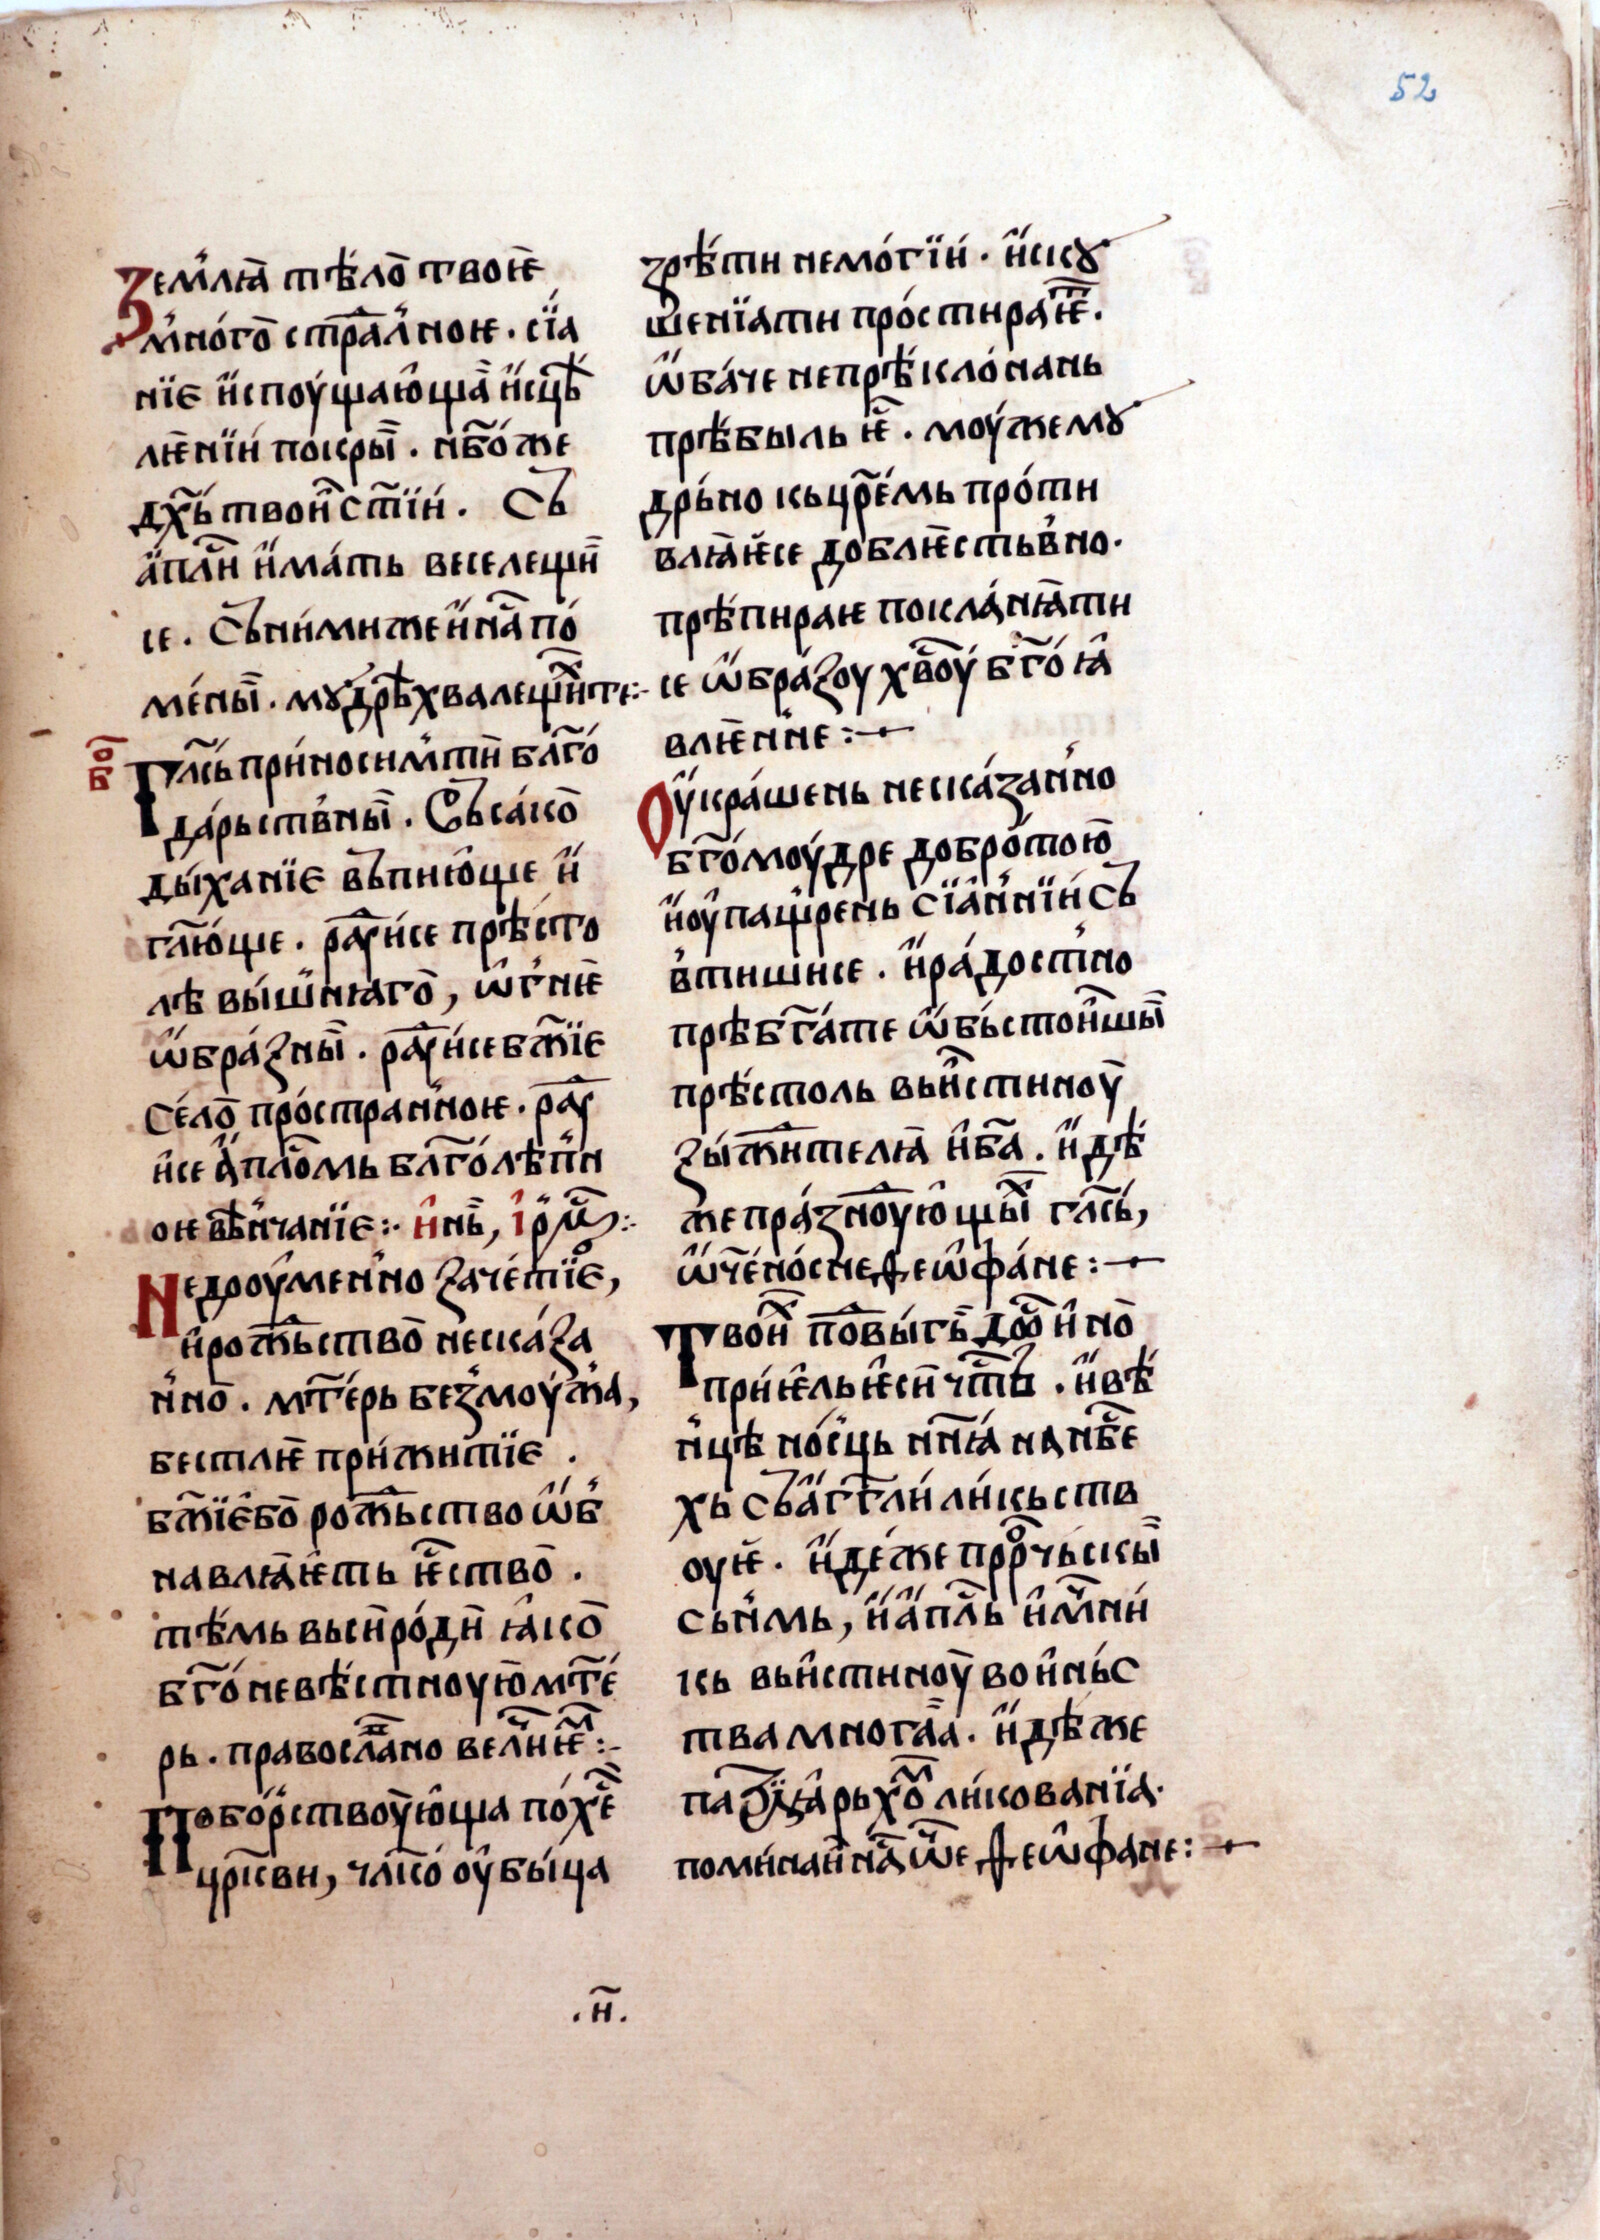 52
Земл҆ꙗ тѣ́ло҃ твоѥ
м҆но́го҃ страⷣл҆ноѥ. сїа
нїе и҆споу́щаю҆ща҃ и҆сцѣ
лѥнїи́ покры҃. нб҃о́же
дх҃ь́ твои҃ ст҃їи́. Съ
а҆пⷭ҇лы и҆ма́ть веселещи҃
се. Съни́миже и҆ на҃ по́
ме́ны҃. мꙋдрѣ хвалещиⷯ те:-
бо҃
Гла҃сь при́носим҆ ти҃ бл҃го́
да́рьств҆ны҃. Съса́ко҃
ды́ханїе въпию҆ще и҆
гл҃ю́ще. раⷣуи́се прѣсто
лѣ вы́ш҆нꙗго҃, ѡ҆г҆нѥ҃
ѡ҆бра́зны҃. раⷣуи́се бж҃їе
се́ло҃ про́стран҆ноѥ. раⷣу
и҆се а҆пло҃мь бл҃го́лѣп҆н
оѥ вѣн҆чанїе:· и҆нь҃, і҆рмⷭ҇:·
Недроу҆мен҆но зачетїе,
и҆рожⷣьство҃ неска́за
н҆но҃. мт҃е́рь без҆моу́жа,
бестлѥ при́житїе.
бж҃їе҆бо҃ рожⷣьство ѡ҆б҆
навлꙗѥ҆ть ѥ҆ство҃.
тѣ́мь вьси҃ро́ди҃ ꙗ҆ко҃
бг҃о́невѣ́стноую҃ мт҃е́
рь. правосла҃но вели҃ѥⷨ:-
Побо́р҆ствоу҆ю҆ща по́ х҃ѥ
цр҃кви, чл҃ко́ оу҆бы́ца
зрѣ́ти немо́гїи́. и҆скꙋ
шенїати про́стираѥⷮ.
ѡ҆ба́че непрѣ́кло́нань
прѣ́быль ѥ҃. моу́жемꙋ
дрь́но кьцр҃е́мь про́ти
влꙗѥ҆се доблѥ҆стьв҆но.
прѣ́пираѥ покла́нꙗти
се ѡ҆бра́зоу хв҃оу́ бг҃о́ ꙗ҆
влѥн҆не:·
Оу҆кра́шень неска́зан҆но
бг҃о́моу́дре добро́тою҃
и҆оу҆пащ҆рень сїа҆н҆нїи́ Съ
в҆тишисе. и҆ра́дост҆но
прѣбг҃а́те ѡ҆бь́стои҆шы҃
прѣ́столь вьи҆стиноу҃
зы́жⷣителꙗ и҆ б҃а. и҆дѣ́
же пра́зноⷣую҆щыⷯ гла҃сь́,
ѡ҆ч҃е́но́сне ѳеѡ҆фа́не:·
Твоиⷯ по҃вы́гь҃ до҃ и҆но҃
при́ѥ҆ль ѥ҆си҃ чⷭ҇ть. и҆вѣ́
н҆цѣ но́с҆ць нн҃ꙗ́ на нб҃е
хь Съа҆гг҃ли́ ли́кьств
оуѥ҆. и҆де́же прⷪ҇рчьскы҃
сьн҆мь, и҆а҆пⷭ҇ль и҆мч҃ни́
кь вьи҆стиноу҃ вои҆нь́с
тва многаа҃. и҆дѣже
патрїа҆рьхоⷨ ли́кованїа.
поми́наи҃ на҃ ѿ҃е ѳеѡ҆фане:·
.н҃.